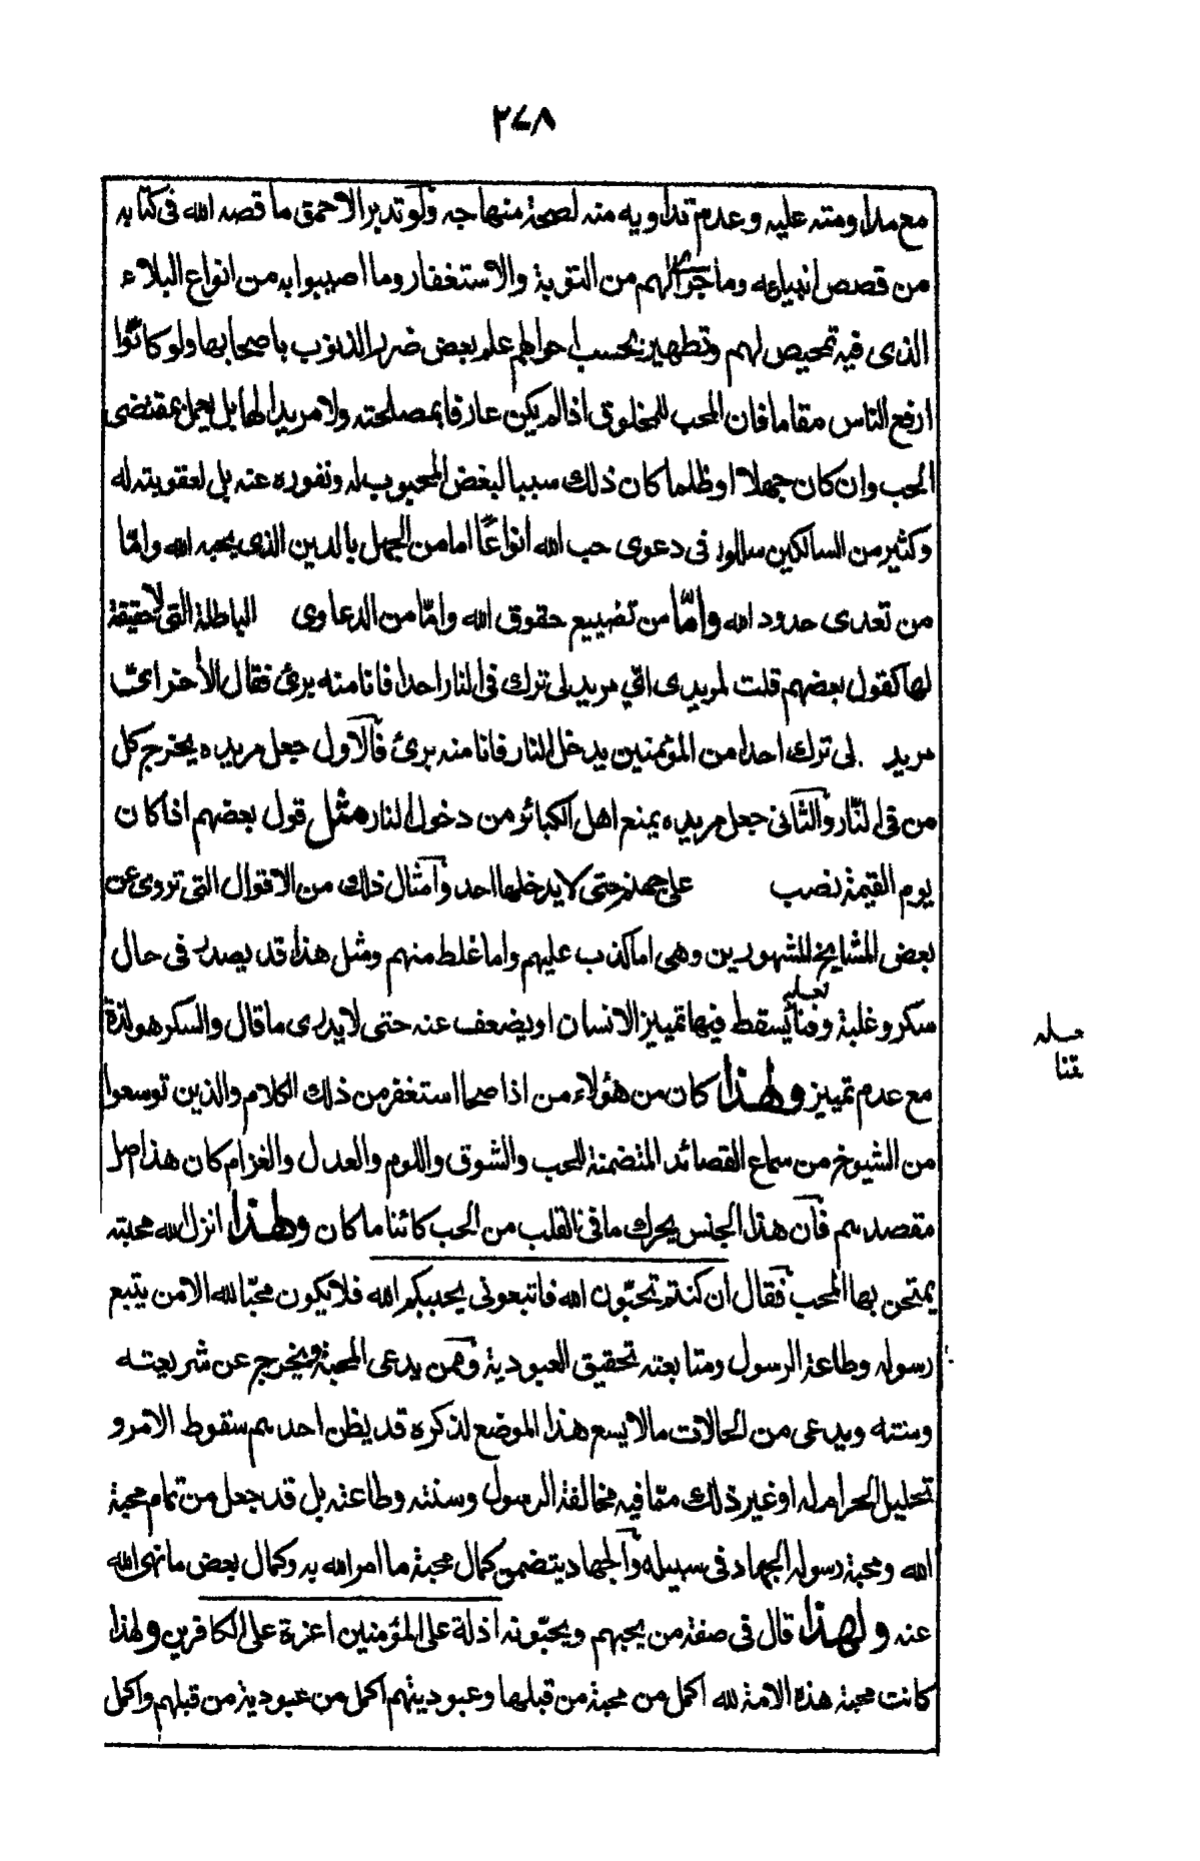 ٢٧٨
مع مداومته عليه وعدم تداويه منه لصحة منهاجه ولو تدبر الاحمق ما قصه الله في كتابه
من قصص انبيائه وما جرى لهم من التوبة والاستغفار وما اصيبوا به من انواع البلاء
الذى فيه تمحيص لهم وتطهير بحسب احوالهم علم بعض ضرر الذنوب باصحابها ولو كانوا
ارفع الناس مقاما فان المحب للمخلوق اذا لم يكن عارفا بمصلحته ولا مريدا لها بل يعمل بمقتضى
الحب وان كان جهلا او ظلما كان ذلك سببا لبغض المحبوب له ونفوره عنه بل لعقوبته له
وكثير من السالكين سلكوا فى دعوى حب الله انواعًا اما من الجهل بالدين الذى يحبه الله وامّا
من تعدى حدود الله وامّا من تضييع حقوق الله وامّا من الدعاوى الباطلة التى لا حقيقة
لها كقول بعضهم قلت لمريدى اىّ مريد لى ترك فى النار احدا فانا منه برئ فقال الأخر اىّ
مريد لى ترك احدا من المؤمنين يدخل النار فانا منه برئ فالاول جعل مريده يخرج كل
من فى النّار والثانى جعل مريده يمنع اهل الكبائر من دخول النار مثل قول بعضهم اذا كان
يوم القيمة نصب على جهنم حتى لا يدخلها احد وامثال ذلك من الاقوال التى تروى عن
بعض المشايخ المشهورين وهى اما كذب عليهم واما غلط منهم ومثل هذا قد يصدر فى حال
سكر وغلبة وفنا يسقط فيها تمييز الانسان او يضعف عنه حتى لا يدرى ما قال والسكر هو لذة
مع عدم تمييز ولهذا كان من هؤلاء من اذا صحا استغفر من ذلك الكلام والذين توسعوا
من الشيوخ من سماع القصائد المتضمنة للحب والشوق واللوم والعدل والغرام كان هذا اصل
مقصدهم فان هذا الجنس يحرك ما فى القلب من الحب كائنا ما كان ولهذا انزل الله محبته
يمتحن بها المحب فقال ان كنتم تحبّون الله فاتبعونى يحببكم الله فلا يكون محبّا لله الا من يتبع
رسوله وطاعة الرسول ومتابعته تحقيق العبودية وممن يدعى المحبة ويخرج عن شريعته
وسنته ويدعى من الحالات ما لا يسع هذا الموضع لذكره قد يظن احدهم سقوط الامر و
تحليل الحرام له او غير ذلك ممّا فيه مخالفة الرسول وسنته وطاعته بل قد جعل من تمام محبة
الله ومحبة رسوله الجهاد فى سبيله والجهاد يتضمن كمال محبة ما امر الله به وكمال بعض ما نهى الله
عنه ولهذا قال فى صفة من يحبهم ويحبّونه اذلة على المؤمنين اعزة على الكافرين ولهذا
كانت محبة هذه الامة لله اكمل من محبة من قبلها وعبوديتهم اكمل من عبودية من قبلهم واكمل